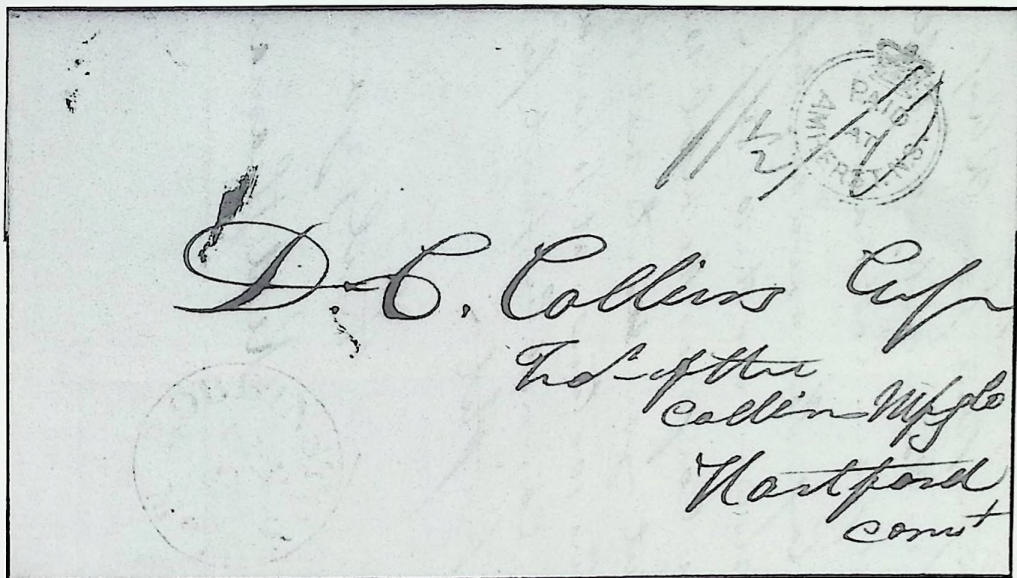 PAID
AT
AMHERST. N.S.
11 1/2
D. C. Collins Esqr
of the
Collins Mfg Co
Hartford
Connt